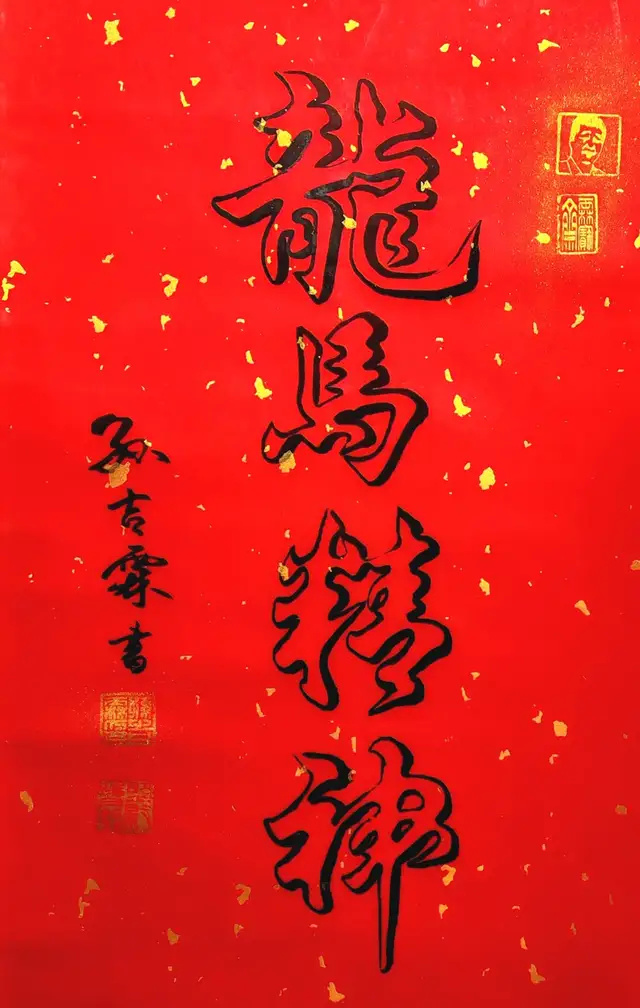 龍馬精神
孫吉霖書